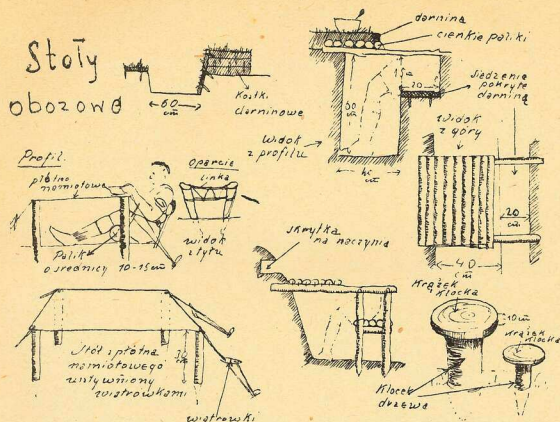 Stoły
obozowe
60
cm
Kostki
darninowe
darnina
cienkie paliki
15
20
60
Siedzenie
pokryte
darniną
Widok
z profilu
cm
Widok
z góry
20
cm
40
cm
Profil.
płótno
namiotowe
Oparcie
linka
Palik
o średnicy 10-15 cm
widok
z tyłu
skrytka
na naczynia
Krążek
klocka
10 cm
Krążek
klocka
Klocek
drzewa
Stół z płótna
namiotowego
usztywniony
wiatrówkami
wiatrówki